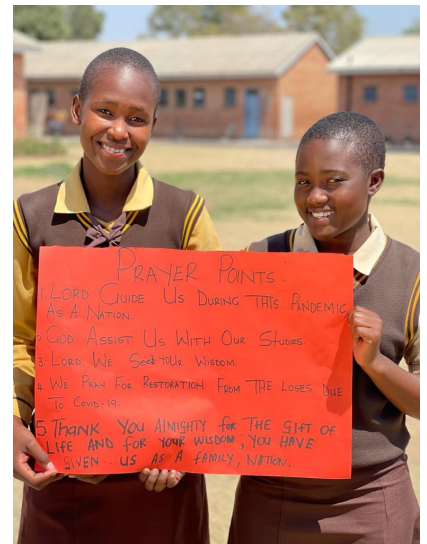 PRAYER POINTS.
1. LORD GUIDE US DURING THIS PANDEMIC
AS A NATION.
2. GOD ASSIST US WITH OUR STUDIES.
3. LORD WE SEEK YOUR WISDOM.
4. WE PRAY FOR RESTORATION FROM THE LOSES DUE
TO COVID-19.
5. THANK YOU ALMIGHTY FOR THE GIFT OF
LIFE AND FOR YOUR WISDOM, YOU HAVE
GIVEN US AS A FAMILY, NATION.